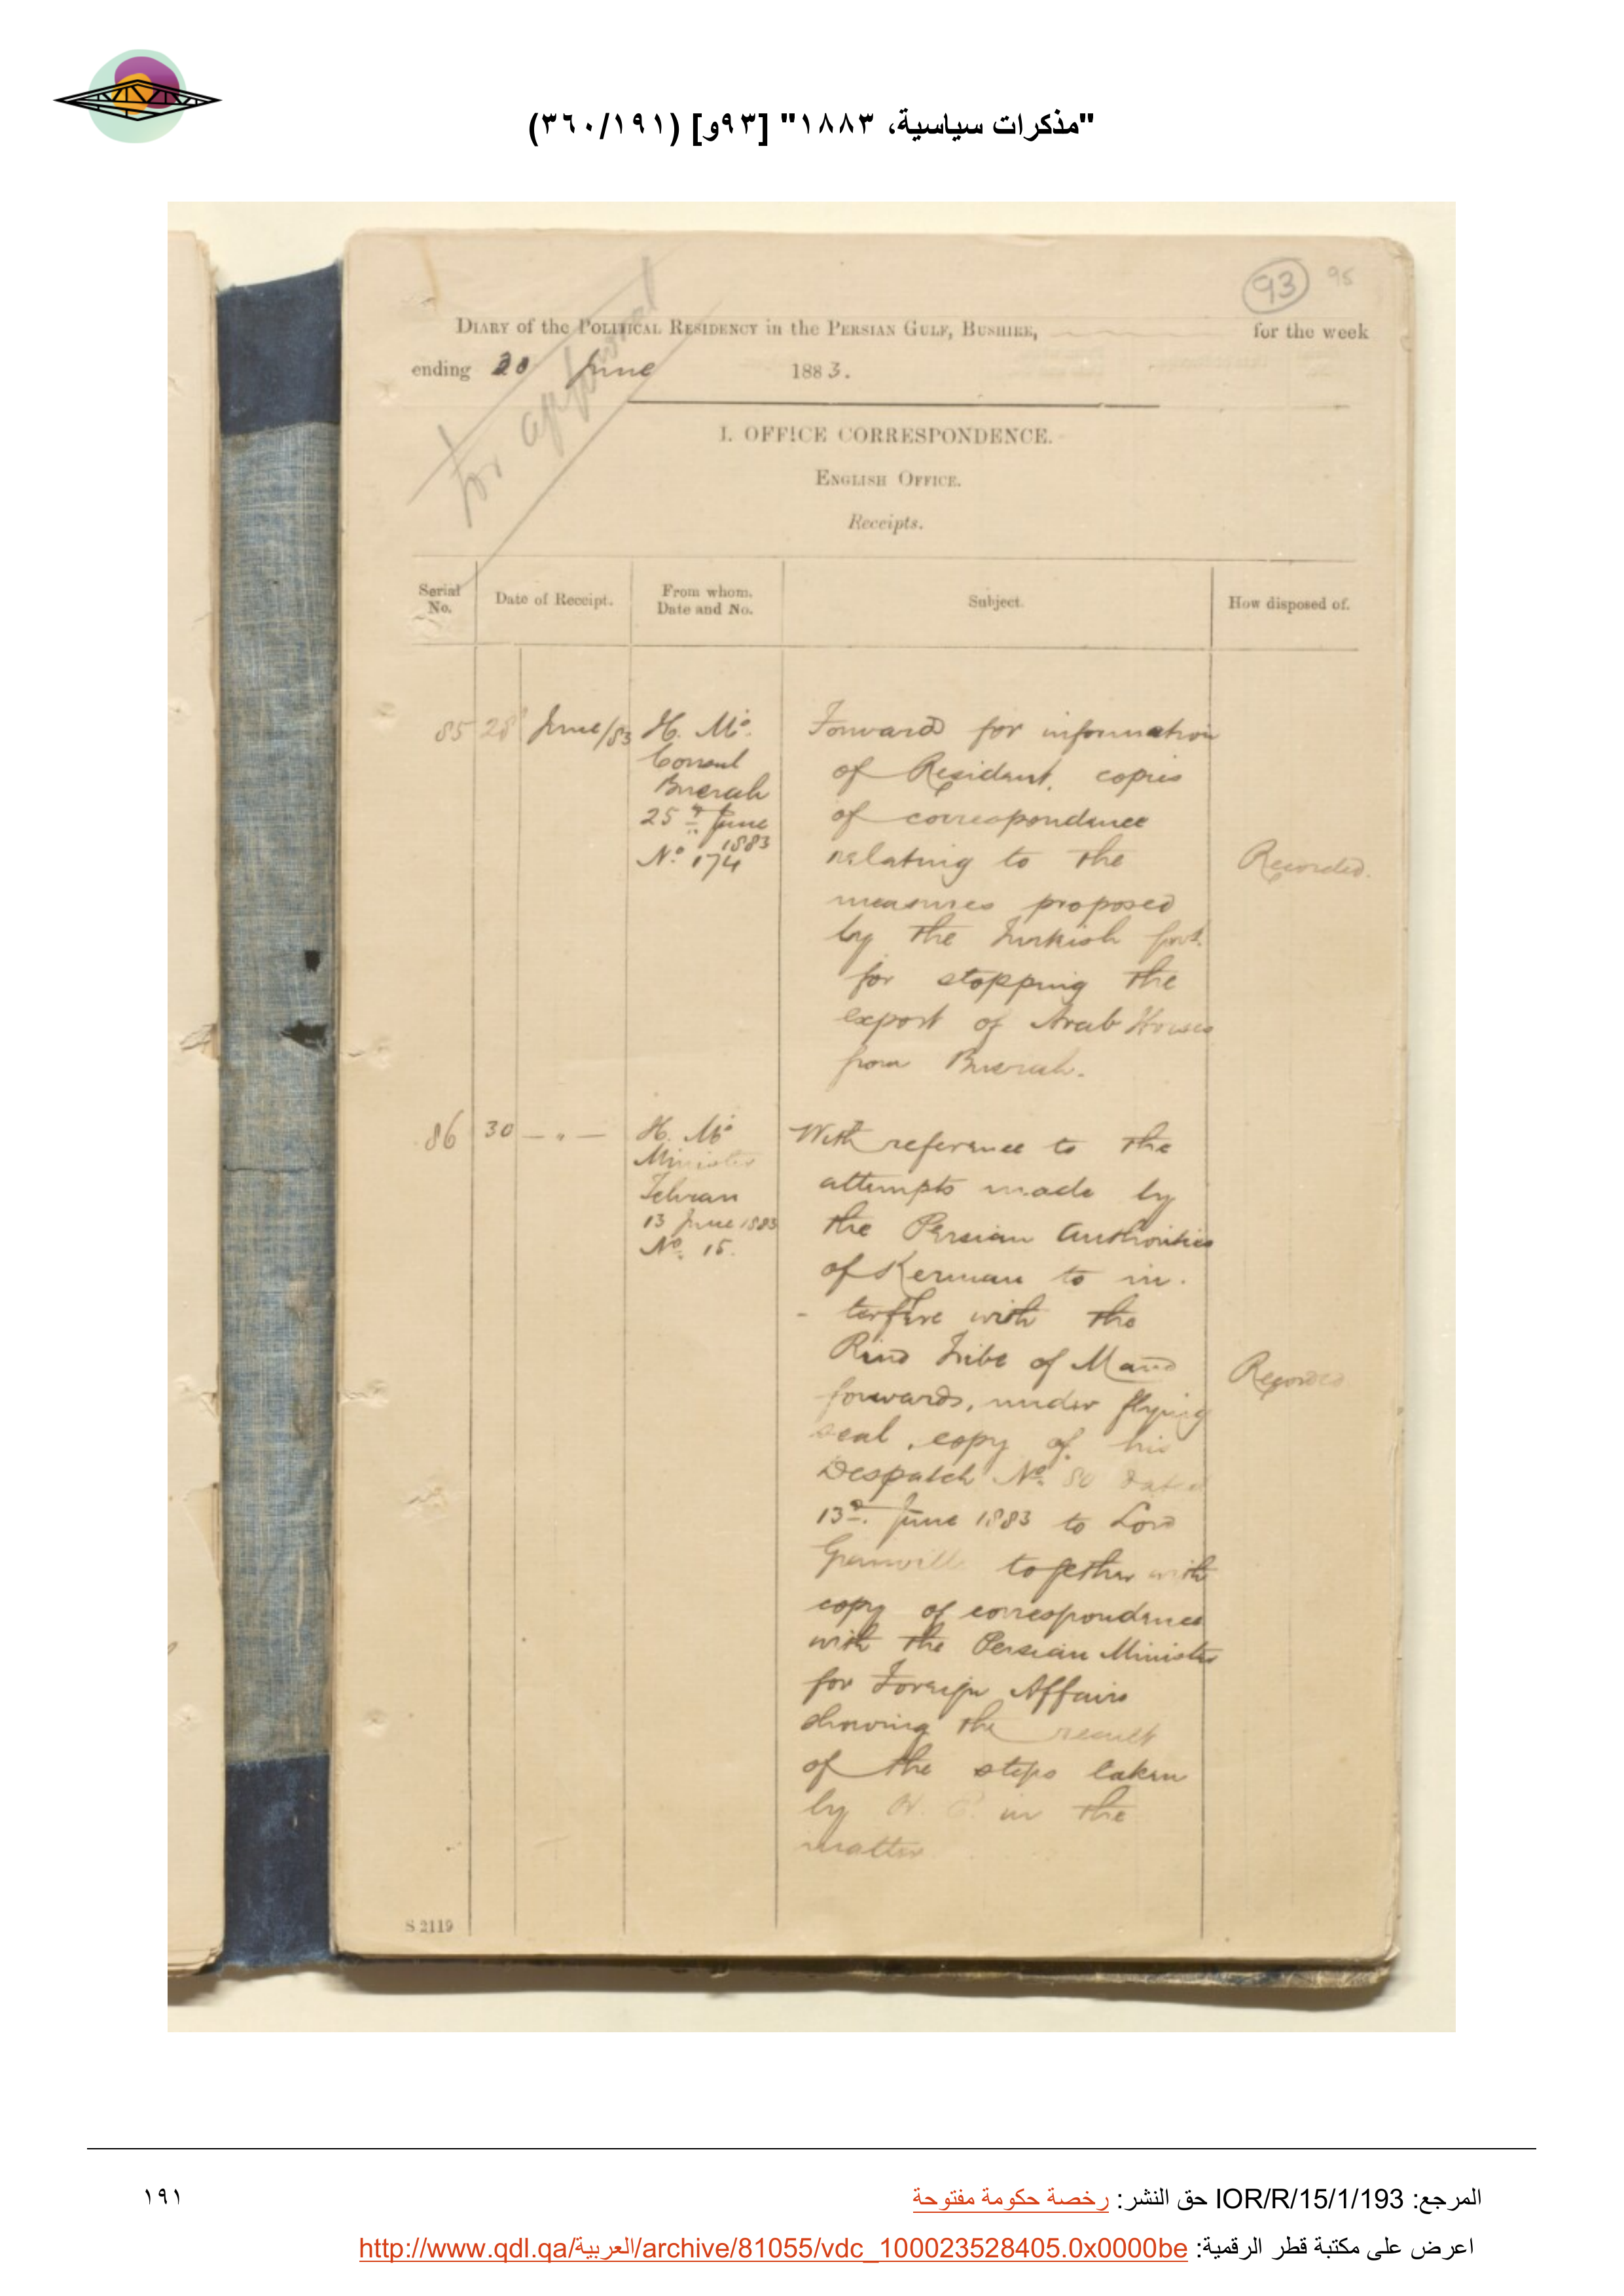 "مذكرات سياسية، ١٨٨٣" [٩٣و] (٣٦٠/١٩١)
93 95
for approval
DIARY of the POLITICAL RESIDENCY in the PERSIAN GULF, BUSHIRE, for the week
ending 30 June 1883.
I. OFFICE CORRESPONDENCE.
ENGLISH OFFICE.
Receipts.
Serial No.
Date of Receipt.
From whom. Date and No.
Subject.
How disposed of.
85 28 June/83
H. M's
Consul
Busrah
25th June
1883
No. 174
Forward for information
of Resident, copies
of correspondence
relating to the
measures proposed
by the Turkish Govt.
for stopping the
export of Arab Horses
from Busrah.
Recorded.
86 30 — " —
H. M's
Minister
Tehran
13 June 1883
No. 15.
With reference to the
attempts made by
the Persian Authorities
of Kerman to in-
-terfere with the
Rind Tribe of Mand
forwards, under flying
seal, copy of his
Despatch No. 80 dated
13th June 1883 to Lord
Granville together with
copy of correspondence
with the Persian Minister
for Foreign Affairs
showing the result
of the steps taken
by H. E. in the
matter
Recorded
S 2119
المرجع: IOR/R/15/1/193 حق النشر: رخصة حكومة مفتوحة
١٩١
اعرض على مكتبة قطر الرقمية: http://www.qdl.qa/العربية/archive/81055/vdc_100023528405.0x0000be